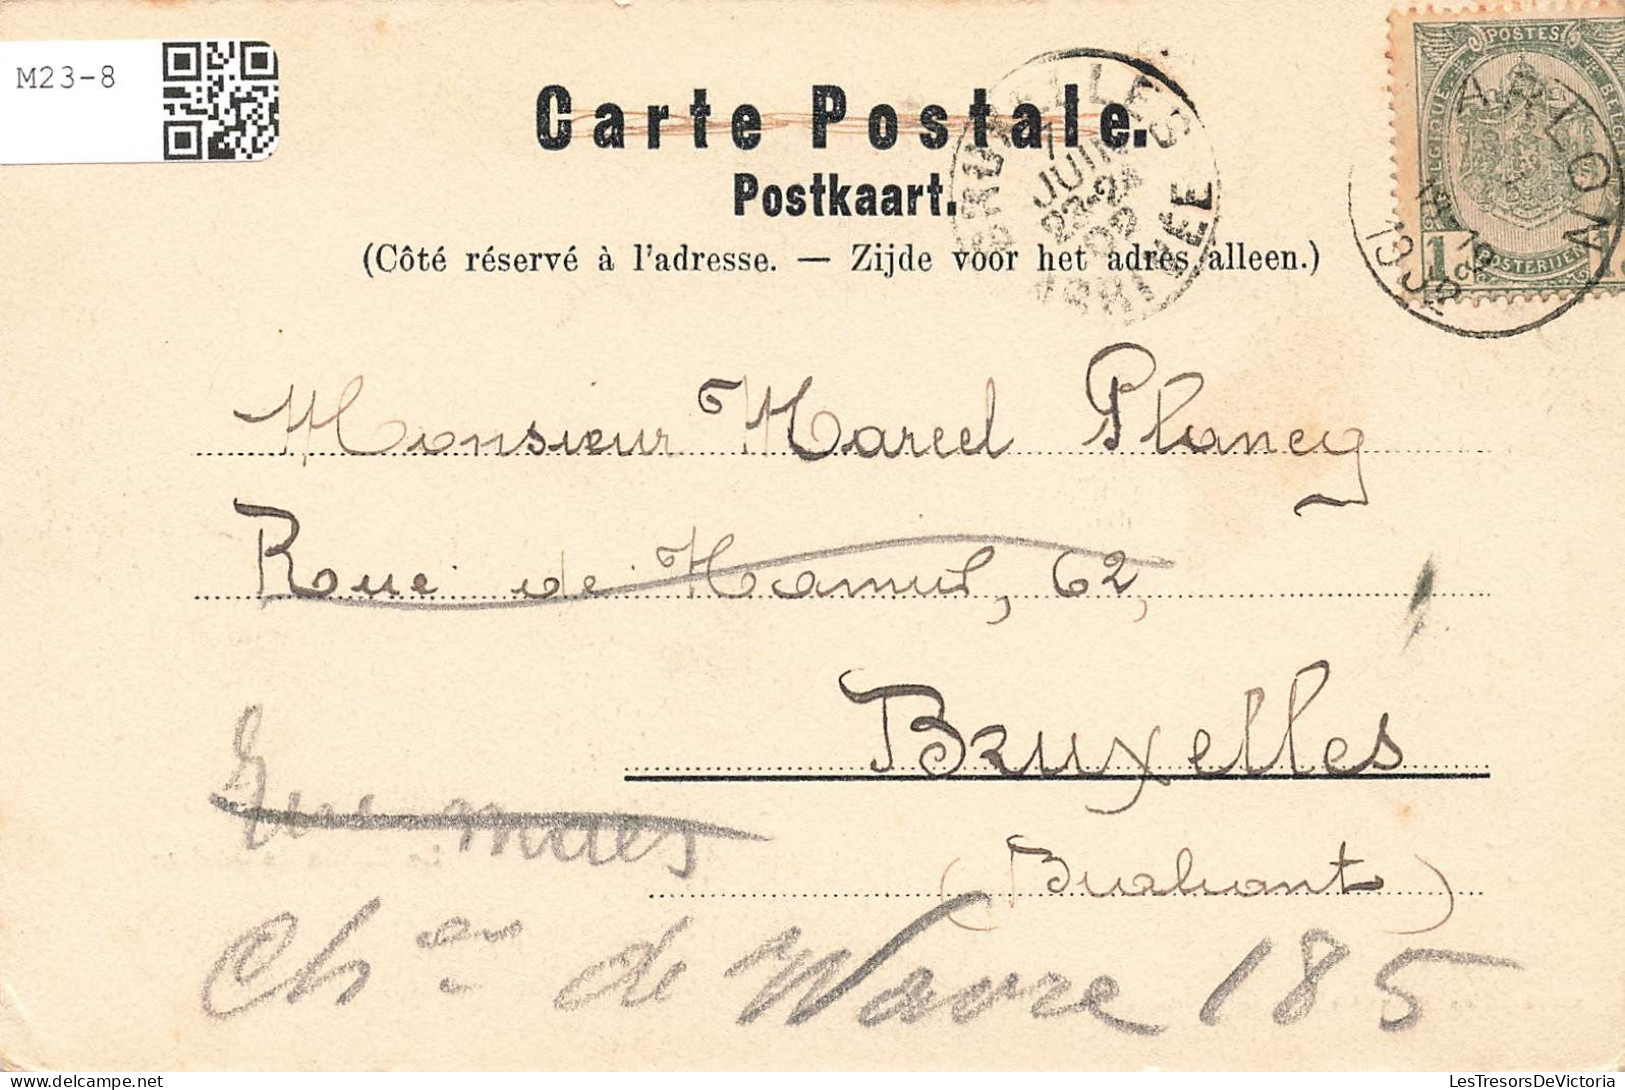 M23-8
Carte Postale.
Postkaart.
(Côté réservé à l'adresse. — Zijde voor het adres alleen.)
BRUXELLES
7
JUIN
22-24
02
ARRIVÉE
POSTES
BELGIQUE
1
ARLON
Monsieur Marcel Plancq
Rue de Namur, 62,
Bruxelles
(Brabant)
Chée de Wavre 185
LesTresorsDeVictoria